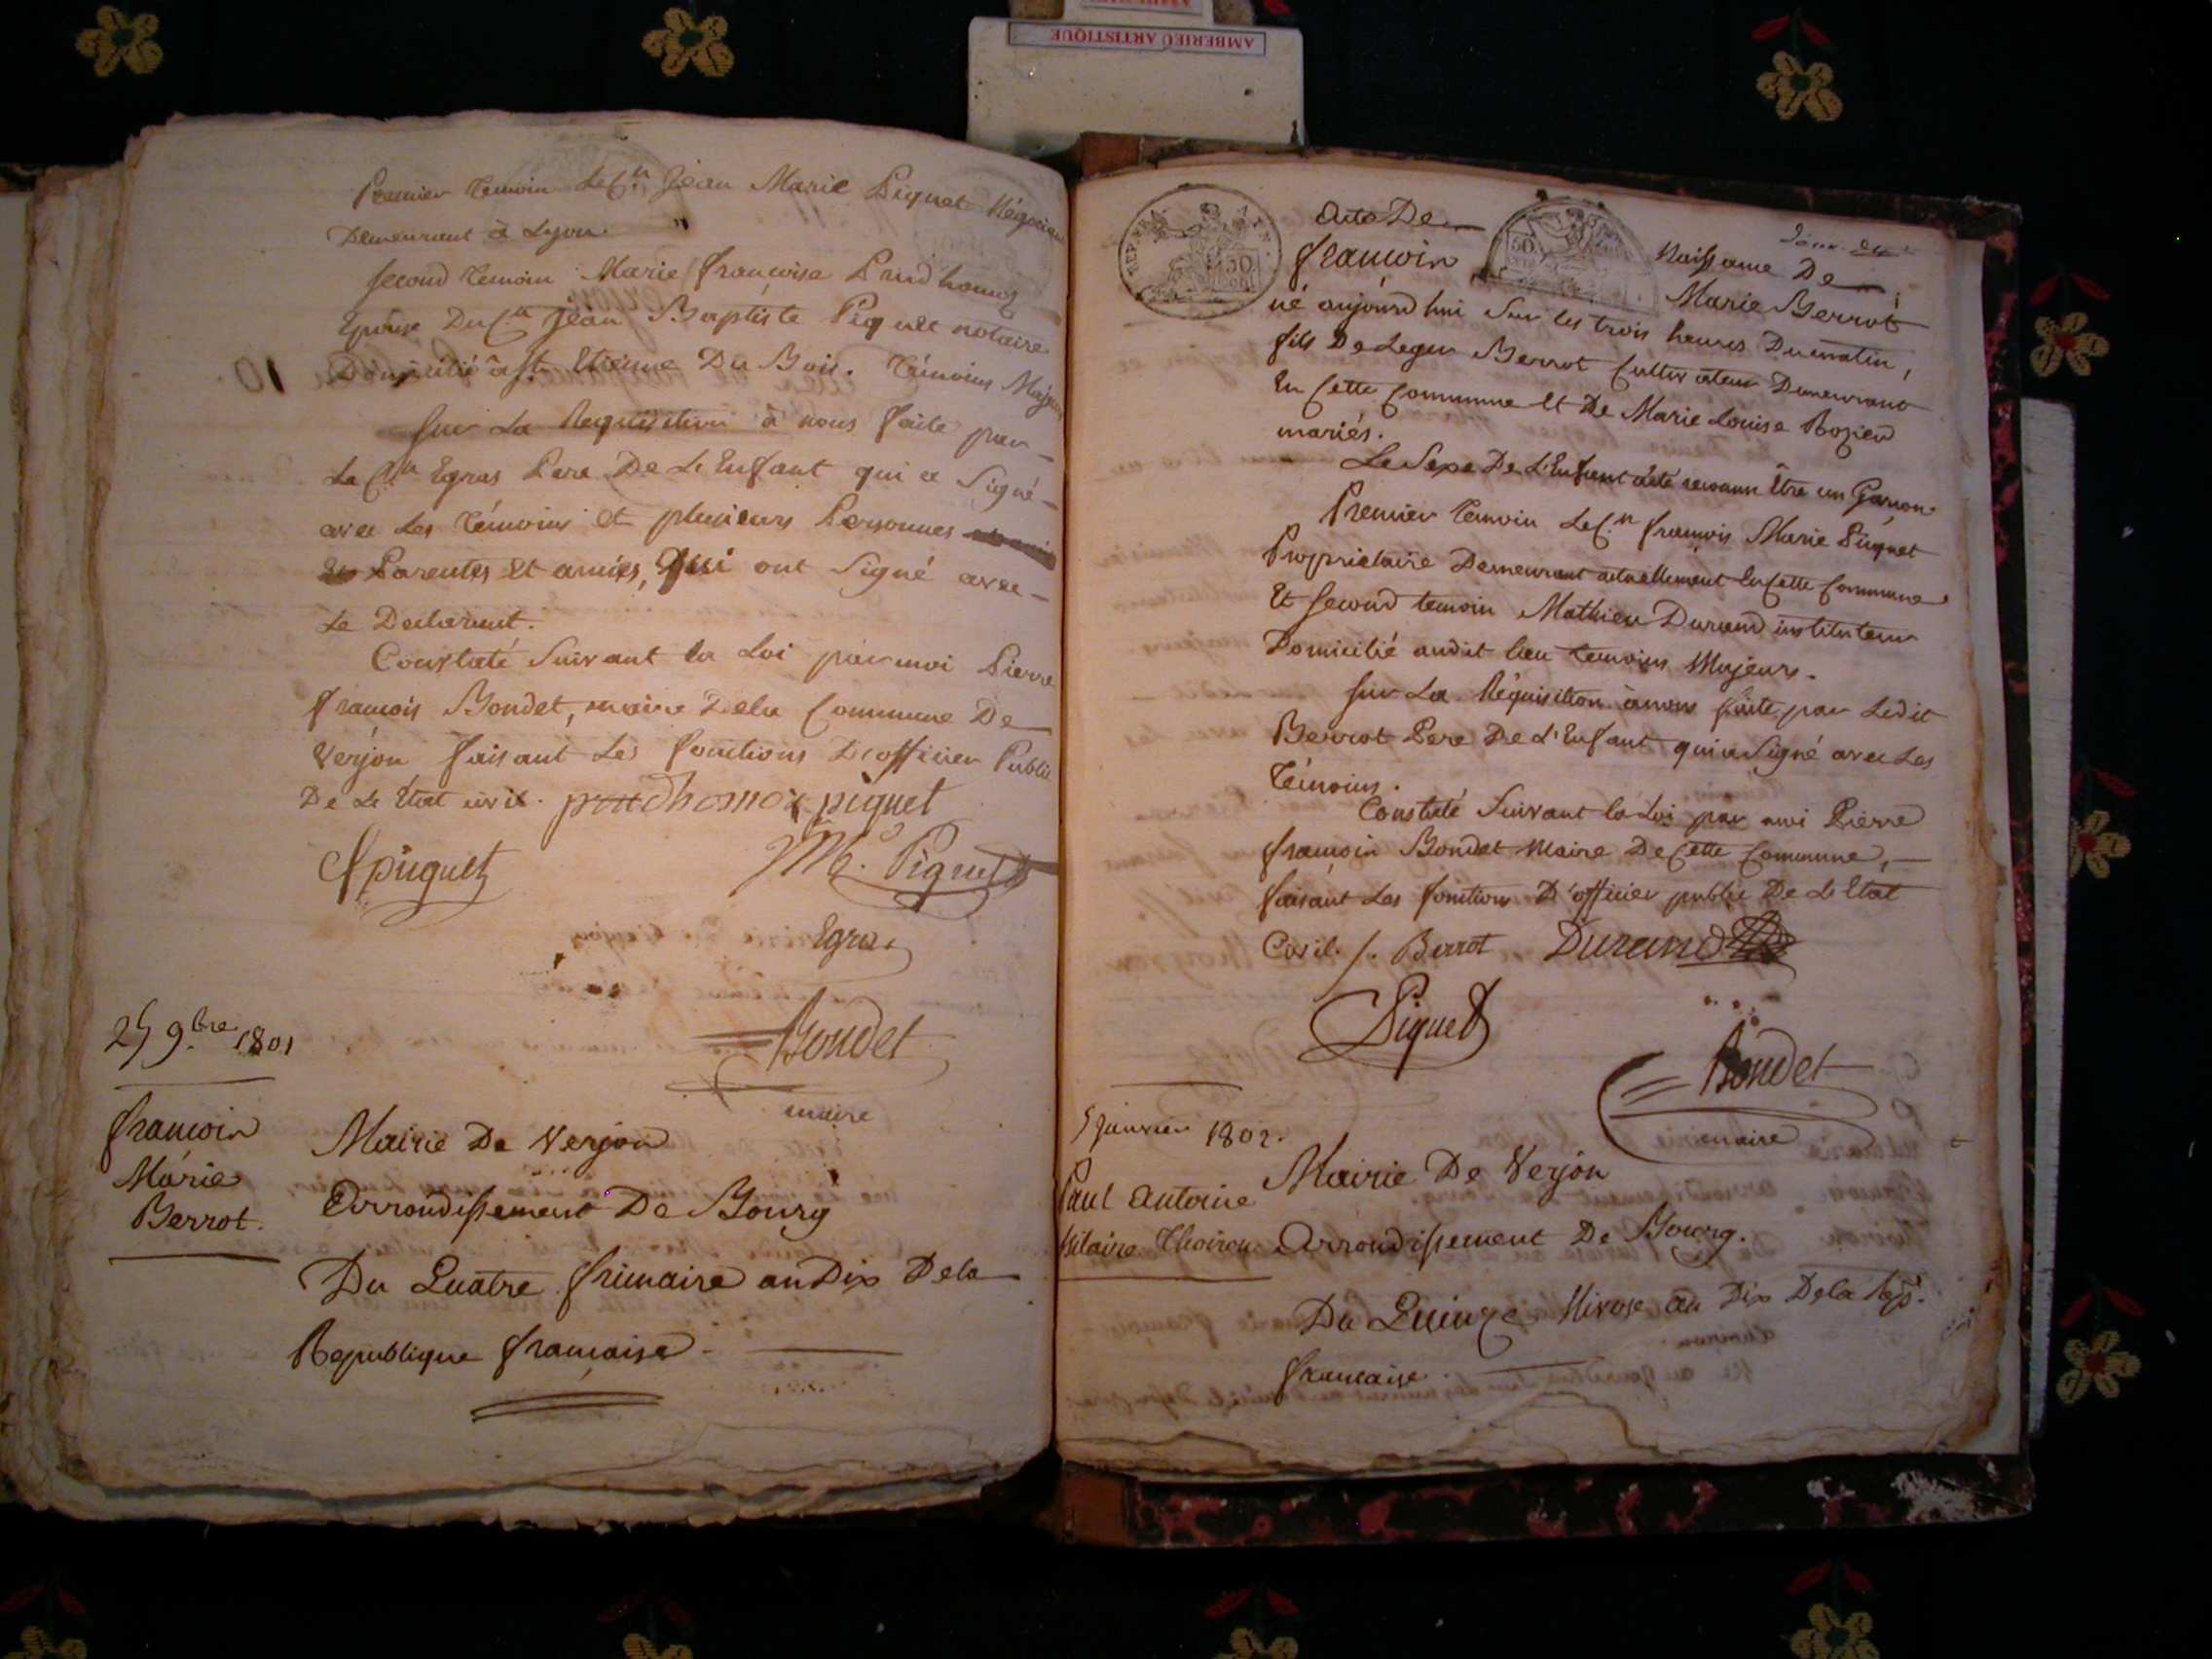 AMBERIEU ARTISTIQUE
Premier temoin Le C.n Jean Marie Piquet Négocian
Demeurant à Lyon.
Second temoin Marie françoise Prudhomme
Epouse Du C.n Jean Baptiste Piquet notaire
Domicilié à St Etienne Du Bois. Témoins Majeurs
Sur La Requisition à nous faite par
Le C.n Egras Pere De L'Enfant qui a Signé
avec Les témoins et plusieurs Personnes
Parentes Et amies, Qui ont Signé avec
Le Declarant.
Constaté Suivant la Loi par moi Pierre
françois Bondet, maire Dela Commune De
Verjon faisant Les fonctions D'officier Public
De L'Etat civil. prudhomme piquet
piquet J M Piquet
Egras
Bondet
maire
9bre 1801
françois
Marie
Berrot.
Mairie De Verjon
Arrondissement De Bourg
Du Quatre frimaire an Dix Dela
Republique francaise.
REP. FRA. AIN
50
50
Acte De Naissance De
françois Marie Berrot
né aujourd'hui Sur les trois heures Dumatin,
fils De Leger Berrot Cultivateur Demeurant
En Cette Commune Et De Marie Louise Rozier
mariés.
Le Sexe De L'Enfant aété reconnu Être un Garçon
Premier temoin Le C.n françois Marie Piquet
Propriétaire Demeurant actuellement En Cette Commune
Et Second temoin Mathieu Durand instituteur
Domicilié audit lieu temoins Majeurs.
Sur La Réquisition ànous faite par Ledit
Berrot Pere De L'Enfant qui a Signé avec Les
Témoins.
Constaté Suivant la Loi par moi Pierre
françois Bondet Maire De Cette Commune,
faisant Les fonctions D'officier public De L'Etat
Civil. Berrot Durand
Piquet
Bondet
maire
5 Janvier 1802.
Paul Antoine
hilaire Thoiron
Mairie De Verjon
Arrondissement De Bourg.
Du Quinze Nivose an Dix Dela Rep.
francaise.